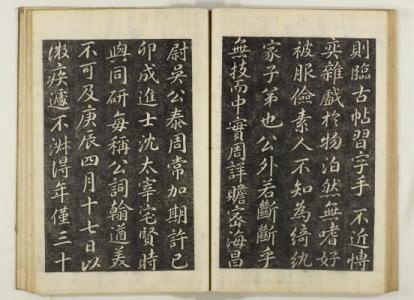 則臨古帖習字手不近博
弈雜戲於物泊然無嗜好
被服儉素人不知為綺紈
家子弟也公外若斷斷乎
無技而中實周詳贍密海昌
尉吳公泰周常加期許已
卯成進士沈太宰宅賢時
與同研每稱公詞翰遒美
不可及庚辰四月十七日以
微疾遽不淑得年僅三十